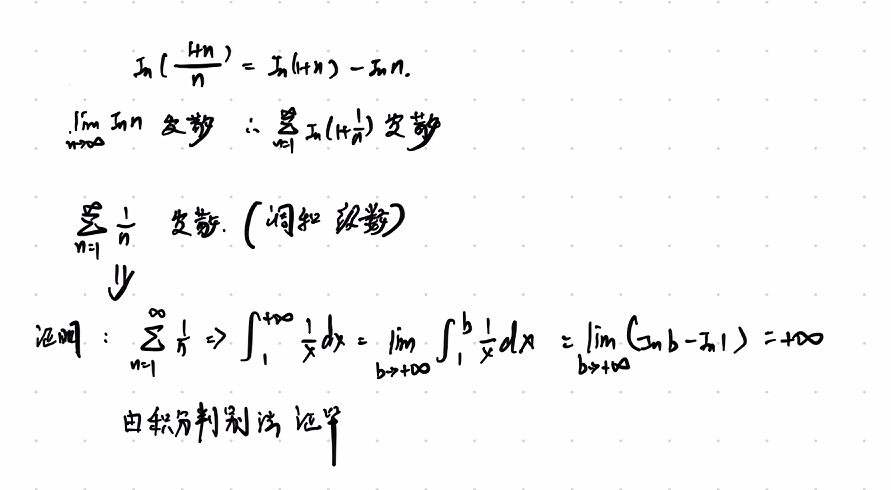 ln(\frac{1+n}{n}) = ln(1+n) - ln n.
\lim_{n→∞} ln n 发散 ∴ \sum_{n=1}^{∞} ln(1+\frac{1}{n}) 发散
\sum_{n=1}^{∞} \frac{1}{n} 发散. (调和级数)
⇓
证明: \sum_{n=1}^{∞} \frac{1}{n} => \int_{1}^{+∞} \frac{1}{x} dx = \lim_{b→+∞} \int_{1}^{b} \frac{1}{x} dx = \lim_{b→+∞} (ln b - ln 1) = +∞
由积分判别法 证毕